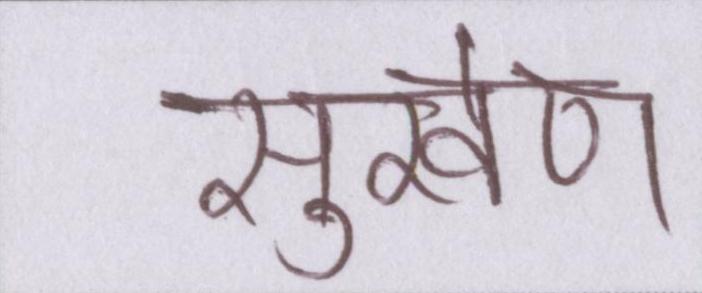 सुखेण